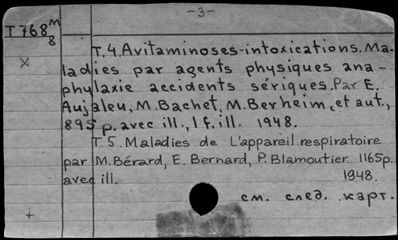 -3-
T 768 M/8
T.4. Avitaminoses-intoxications. Ma-
ladies par agents physiques ana-
phylaxie accidents sériques. Par E.
Aujaleu, M. Bachet, M. Berheim, et aut.,
895 p. avec ill., 1 f. ill. 1948.
T.5. Maladies de L'appareil respiratoire
par M. Bérard, E. Bernard, P. Blamoutier 1165p.
avec ill. 1948.
см. след. карт.